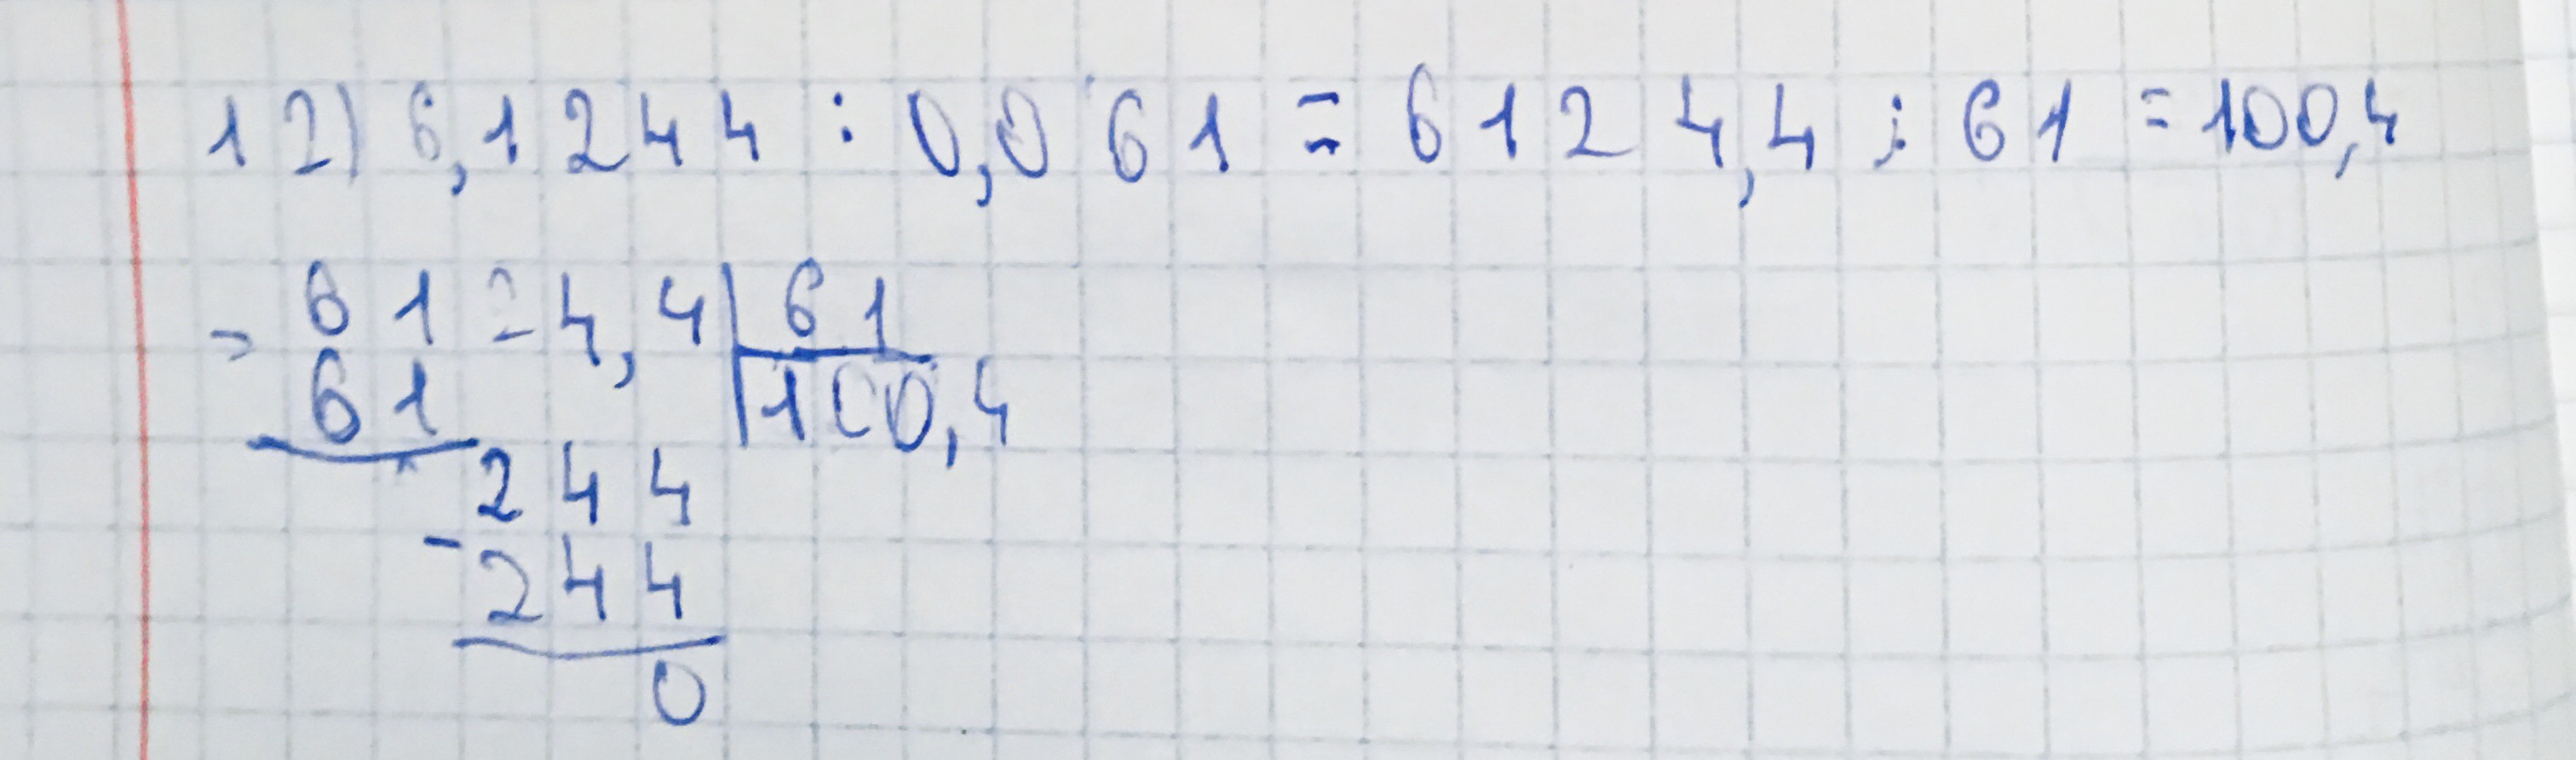 12) 6,1244 : 0,061 = 6124,4 : 61 = 100,4
- 6124,4 | 61
61 | 100,4
244
- 244
0